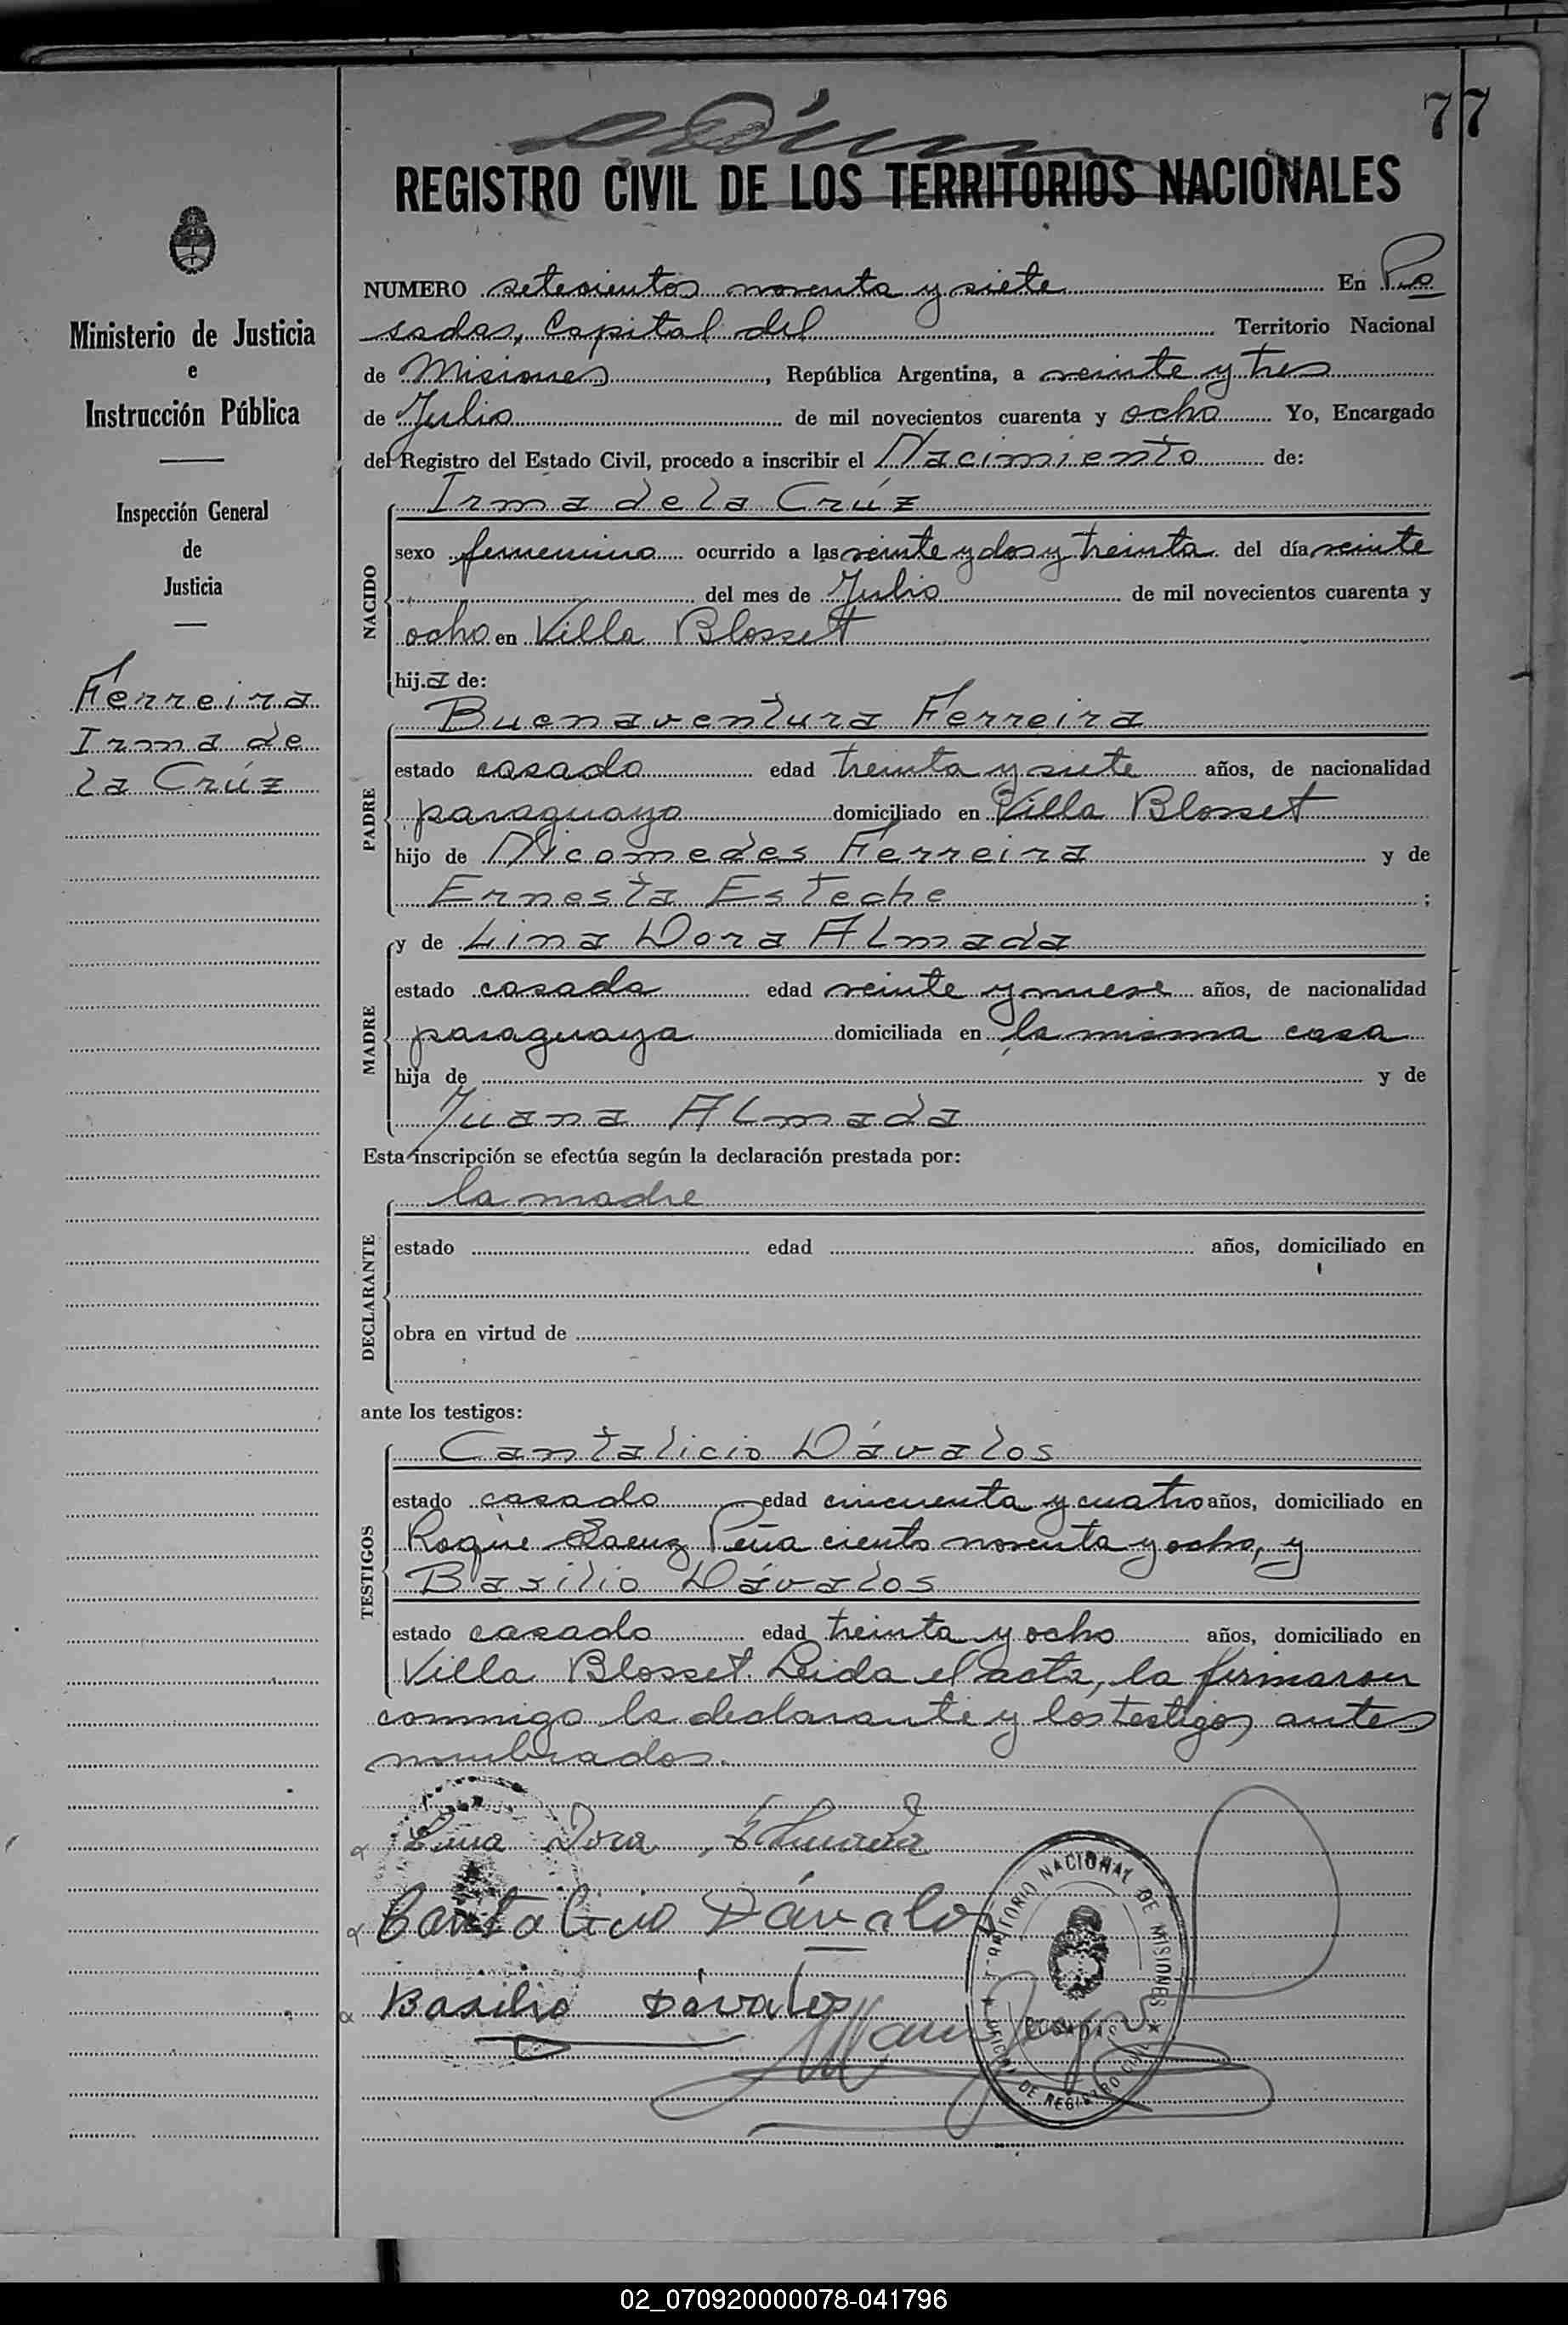 77
REGISTRO CIVIL DE LOS TERRITORIOS NACIONALES
Ministerio de Justicia
e
Instrucción Pública
Inspección General
de
Justicia
Ferreira
Irma de
la Crúz
NUMERO setecientos noventa y siete En Po
sadas, Capital del Territorio Nacional
de Misiones, República Argentina, a veinte y tres
de Julio de mil novecientos cuarenta y ocho Yo, Encargado
del Registro del Estado Civil, procedo a inscribir el Nacimiento de:
Irma de la Crúz
NACIDO
sexo femenino ocurrido a las veinte y dos y treinta del día veinte
del mes de Julio de mil novecientos cuarenta y
ocho en Villa Blosset
hij.a de:
Buenaventura Ferreira
PADRE
estado casado edad treinta y siete años, de nacionalidad
paraguayo domiciliado en Villa Blosset
hijo de Nicomedes Ferreira y de
Ernesta Esteche ;
y de Lina Dora Almada
MADRE
estado casada edad veinte y nueve años, de nacionalidad
paraguaya domiciliada en la misma casa
hija de y de
Juana Almada
Esta inscripción se efectúa según la declaración prestada por:
la madre
DECLARANTE
estado edad años, domiciliado en
obra en virtud de
ante los testigos:
Cantalicio Dávalos
TESTIGOS
estado casado edad cincuenta y cuatro años, domiciliado en
Roque Saenz Peña ciento noventa y ocho, y
Basilio Dávalos
estado casado edad treinta y ocho años, domiciliado en
Villa Blosset. Leida el acta, la firmaron
conmigo la declarante y los testigos antes
nombrados.
Lina Dora Almada
Cantalicio Dávalos
Basilio Dávalos
TERRITORIO NACIONAL DE MISIONES
POSADAS
OFICINA DE REGISTRO CIVIL
02_070920000078-041796